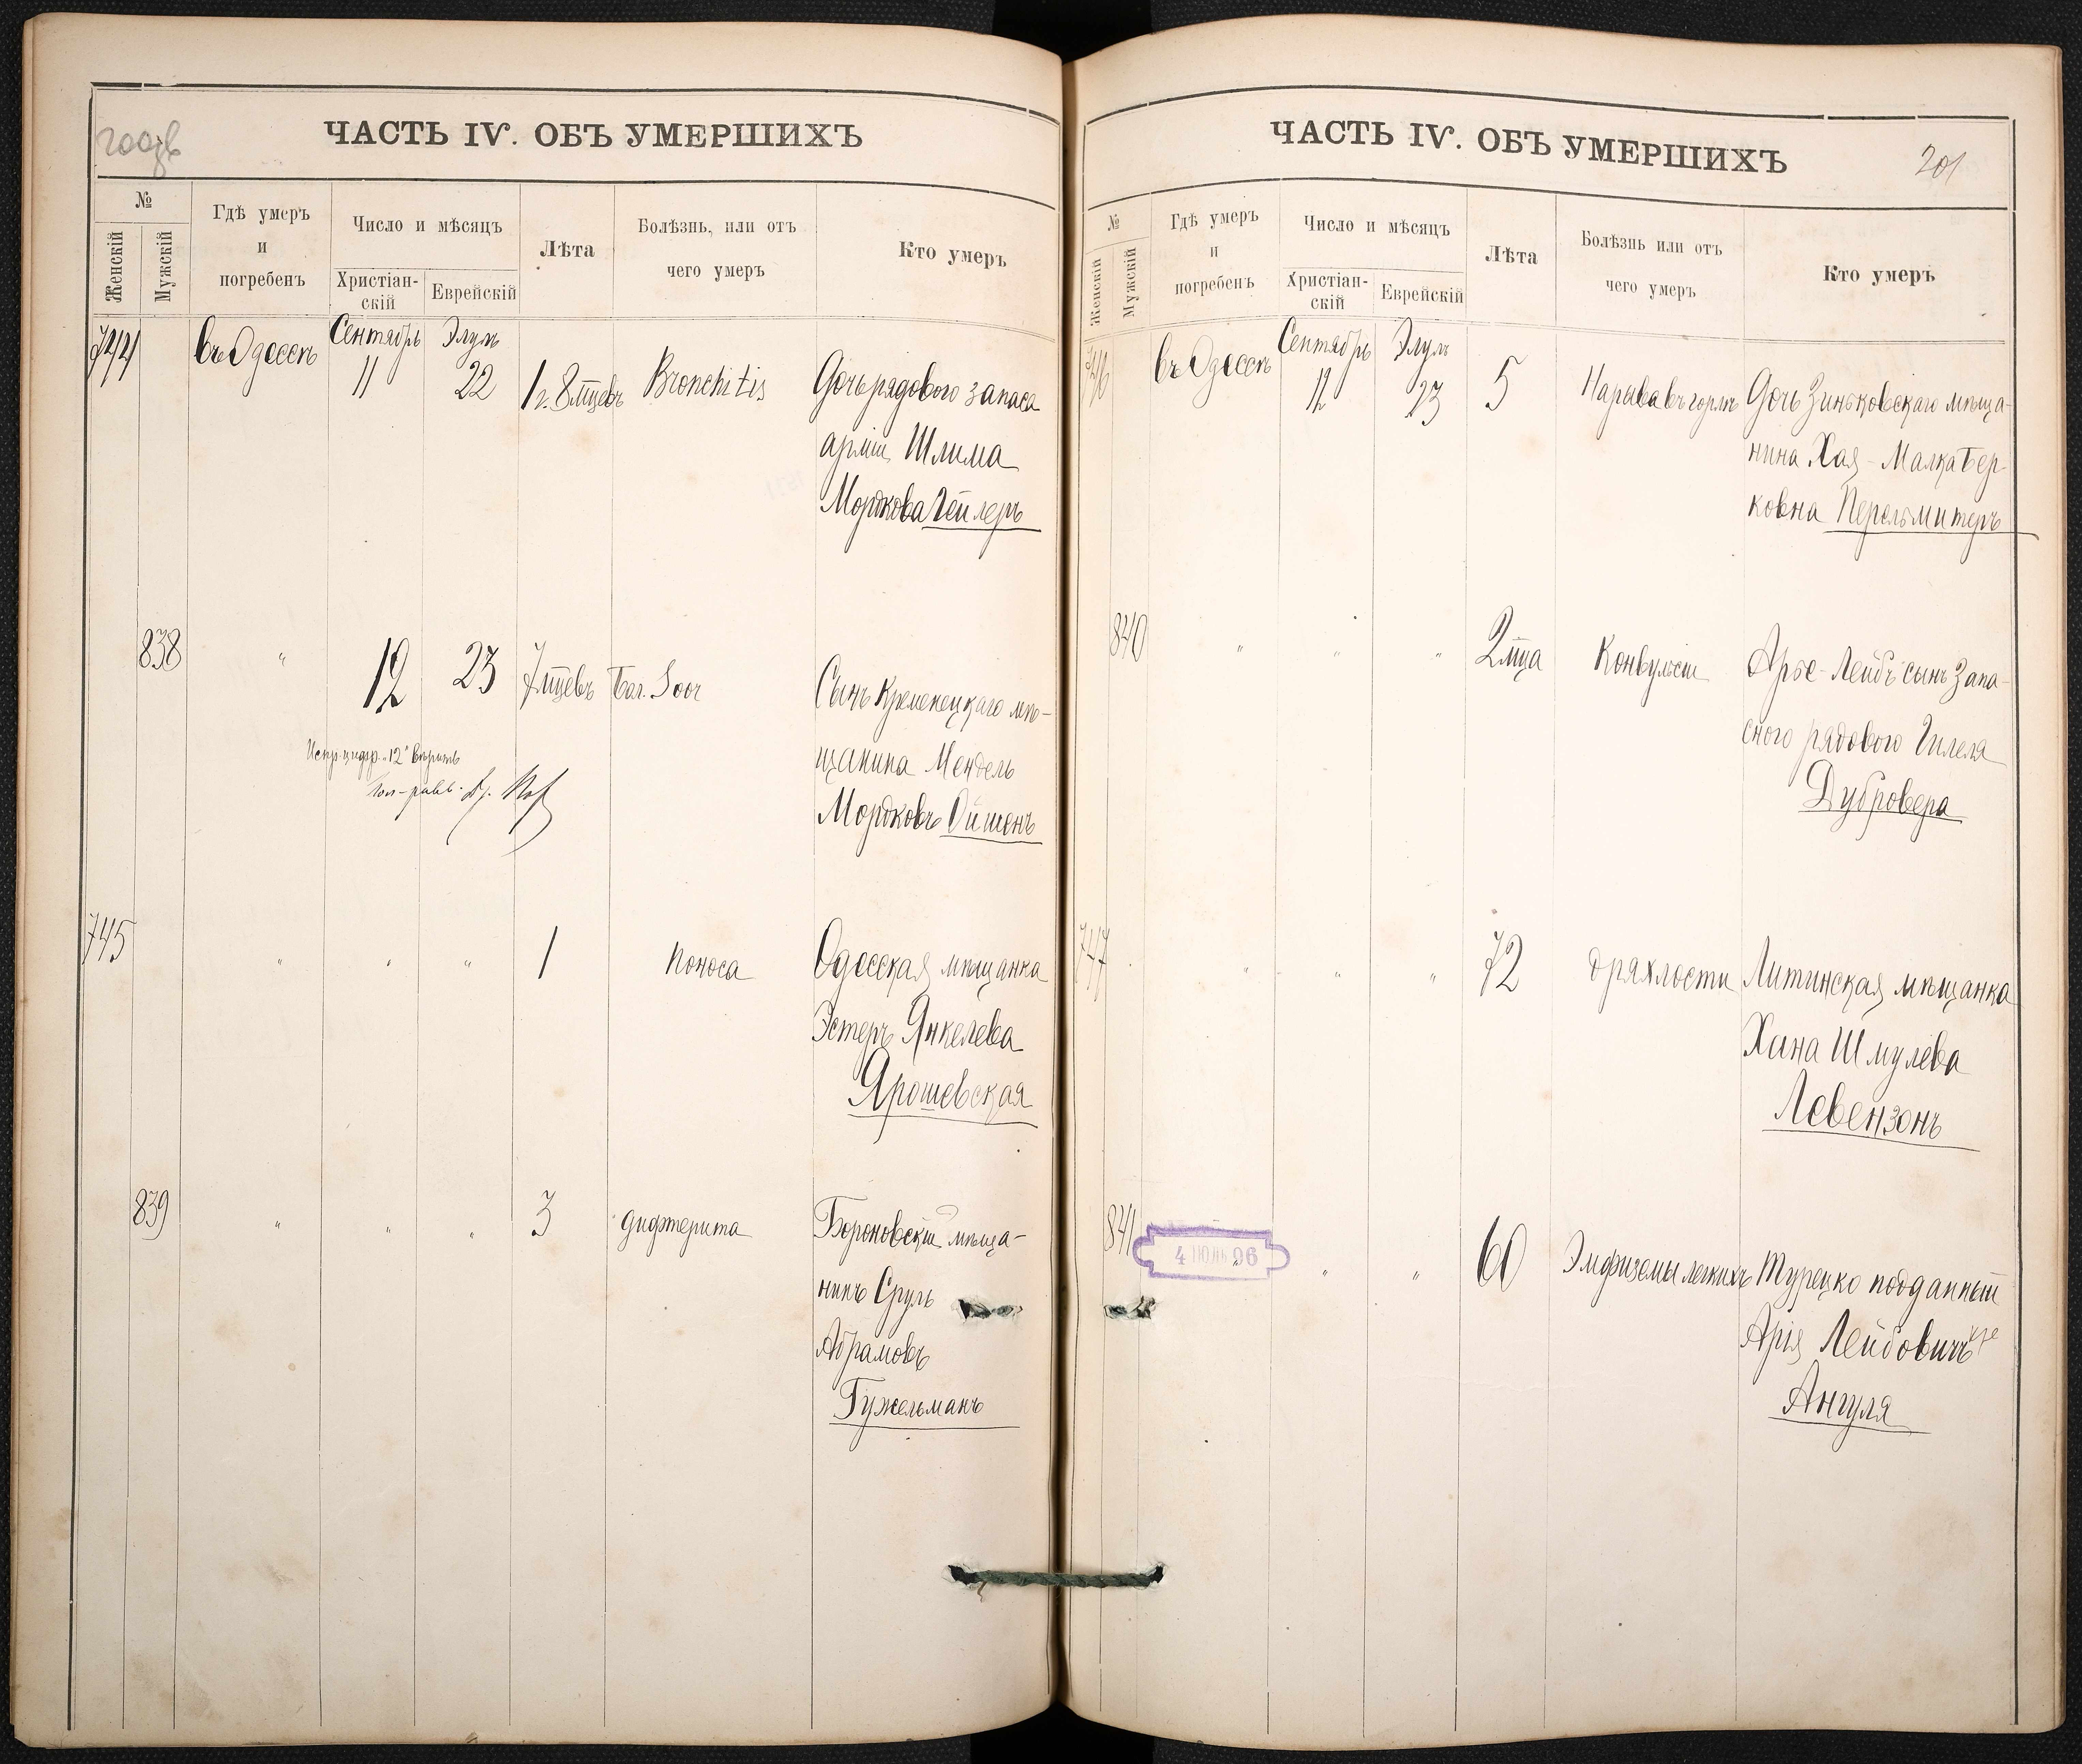 200об
ЧАСТЬ IV. ОБЪ УМЕРШИХЪ
№
Женскій
Мужскій
Гдѣ умеръ
и
погребенъ
Число и мѣсяцъ
Христіан-
скій
Еврейскій
Лѣта
Болѣзнь, или отъ
чего умеръ
Кто умеръ
744
въ Одессѣ
Сентябрь
11
Элулъ
22
1 г. 8 мцевъ
Bronchitis
Дочь рядового запаса
арміи Шлима
Мордкова Гейлеръ
838
"
12
23
7 мцевъ
Бол. Soor
Сынъ Кременецкаго мѣ-
щанина Мендель
Мордковъ Ойшенъ
Испр. цифр. "12" вѣрить
745
"
"
"
1
поноса
Одесская мѣщанка
Эстеръ Янкелева
Ярошевская
839
"
"
"
3
дифтерита
мѣща-
нинъ Сруль
Абрамовъ
Гужельманъ
ЧАСТЬ IV. ОБЪ УМЕРШИХЪ
201
№
Женскій
Мужскій
Гдѣ умеръ
и
погребенъ
Число и мѣсяцъ
Христіан-
скій
Еврейскій
Лѣта
Болѣзнь или отъ
чего умеръ
Кто умеръ
746
въ Одессѣ
Сентябрь
12
Элулъ
23
5
Нарыва въ горлѣ
Дочь Зиньковскаго мѣща-
нина Хая-Малка Бер-
ковна Перельмитеръ
840
"
"
"
2 мца
Конвульсіи
Арье-Лейбъ сынъ Запа-
сного рядового Гилеля
Дубровера
747
"
"
"
72
дряхлости
Литинская мѣщанка
Хана Шмулева
Левензонъ
841
4 ИЮЛЬ 96
"
"
"
60
Эмфиземы легкихъ
Турецко подданный
Арія Лейбовичъ
Ангуля